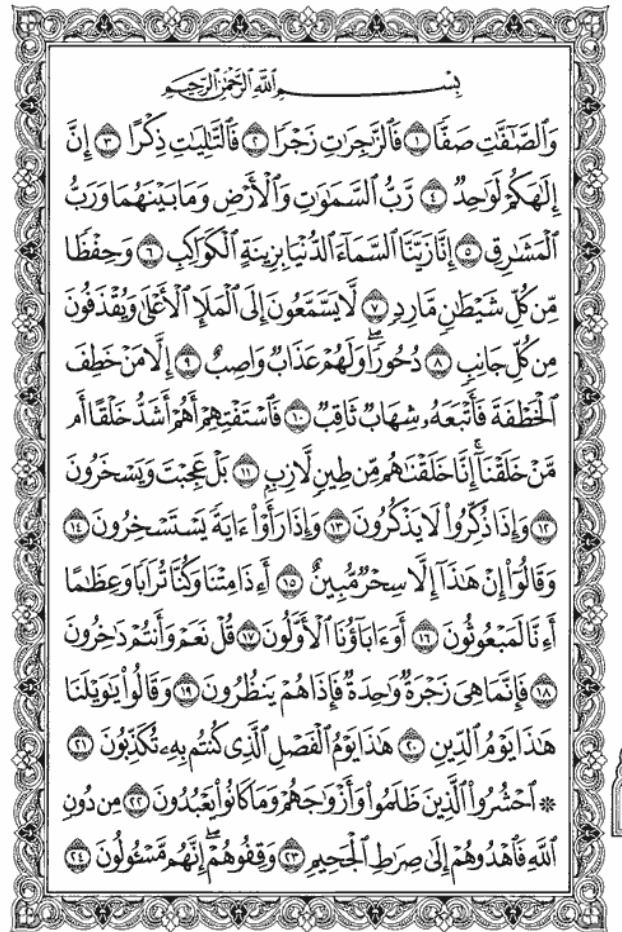 بِسْمِ ٱللَّهِ ٱلرَّحْمَٰنِ ٱلرَّحِيمِ
وَٱلصَّٰٓفَّٰتِ صَفًّا ١ فَٱلزَّٰجِرَٰتِ زَجْرًا ٢ فَٱلتَّٰلِيَٰتِ ذِكْرًا ٣ إِنَّ
إِلَٰهَكُمْ لَوَٰحِدٌ ٤ رَّبُّ ٱلسَّمَٰوَٰتِ وَٱلْأَرْضِ وَمَا بَيْنَهُمَا وَرَبُّ
ٱلْمَشَٰرِقِ ٥ إِنَّا زَيَّنَّا ٱلسَّمَآءَ ٱلدُّنْيَا بِزِينَةٍ ٱلْكَوَاكِبِ ٦ وَحِفْظًا
مِّن كُلِّ شَيْطَٰنٍ مَّارِدٍ ٧ لَّا يَسَّمَّعُونَ إِلَى ٱلْمَلَإِ ٱلْأَعْلَىٰ وَيُقْذَفُونَ
مِن كُلِّ جَانِبٍ ٨ دُحُورًا ۖ وَلَهُمْ عَذَابٌ وَاصِبٌ ٩ إِلَّا مَنْ خَطِفَ
ٱلْخَطْفَةَ فَأَتْبَعَهُۥ شِهَابٌ ثَاقِبٌ ١٠ فَٱسْتَفْتِهِمْ أَهُمْ أَشَدُّ خَلْقًا أَم
مَّنْ خَلَقْنَآ ۚ إِنَّا خَلَقْنَٰهُم مِّن طِينٍ لَّازِبٍ ١١ بَلْ عَجِبْتَ وَيَسْخَرُونَ
١٢ وَإِذَا ذُكِّرُوا۟ لَا يَذْكُرُونَ ١٣ وَإِذَا رَأَوْا۟ ءَايَةً يَسْتَسْخِرُونَ ١٤
وَقَالُوٓا۟ إِنْ هَٰذَآ إِلَّا سِحْرٌ مُّبِينٌ ١٥ أَءِذَا مِتْنَا وَكُنَّا تُرَابًا وَعِظَٰمًا
أَءِنَّا لَمَبْعُوثُونَ ١٦ أَوَءَابَآؤُنَا ٱلْأَوَّلُونَ ١٧ قُلْ نَعَمْ وَأَنتُمْ دَٰخِرُونَ
١٨ فَإِنَّمَا هِىَ زَجْرَةٌ وَٰحِدَةٌ فَإِذَا هُمْ يَنظُرُونَ ١٩ وَقَالُوا۟ يَٰوَيْلَنَا
هَٰذَا يَوْمُ ٱلدِّينِ ٢٠ هَٰذَا يَوْمُ ٱلْفَصْلِ ٱلَّذِى كُنتُم بِهِۦ تُكَذِّبُونَ ٢١
۞ ٱحْشُرُوا۟ ٱلَّذِينَ ظَلَمُوا۟ وَأَزْوَٰجَهُمْ وَمَا كَانُوا۟ يَعْبُدُونَ ٢٢ مِن دُونِ
ٱللَّهِ فَٱهْدُوهُمْ إِلَىٰ صِرَٰطِ ٱلْجَحِيمِ ٢٣ وَقِفُوهُمْ ۖ إِنَّهُم مَّسْـُٔولُونَ ٢٤